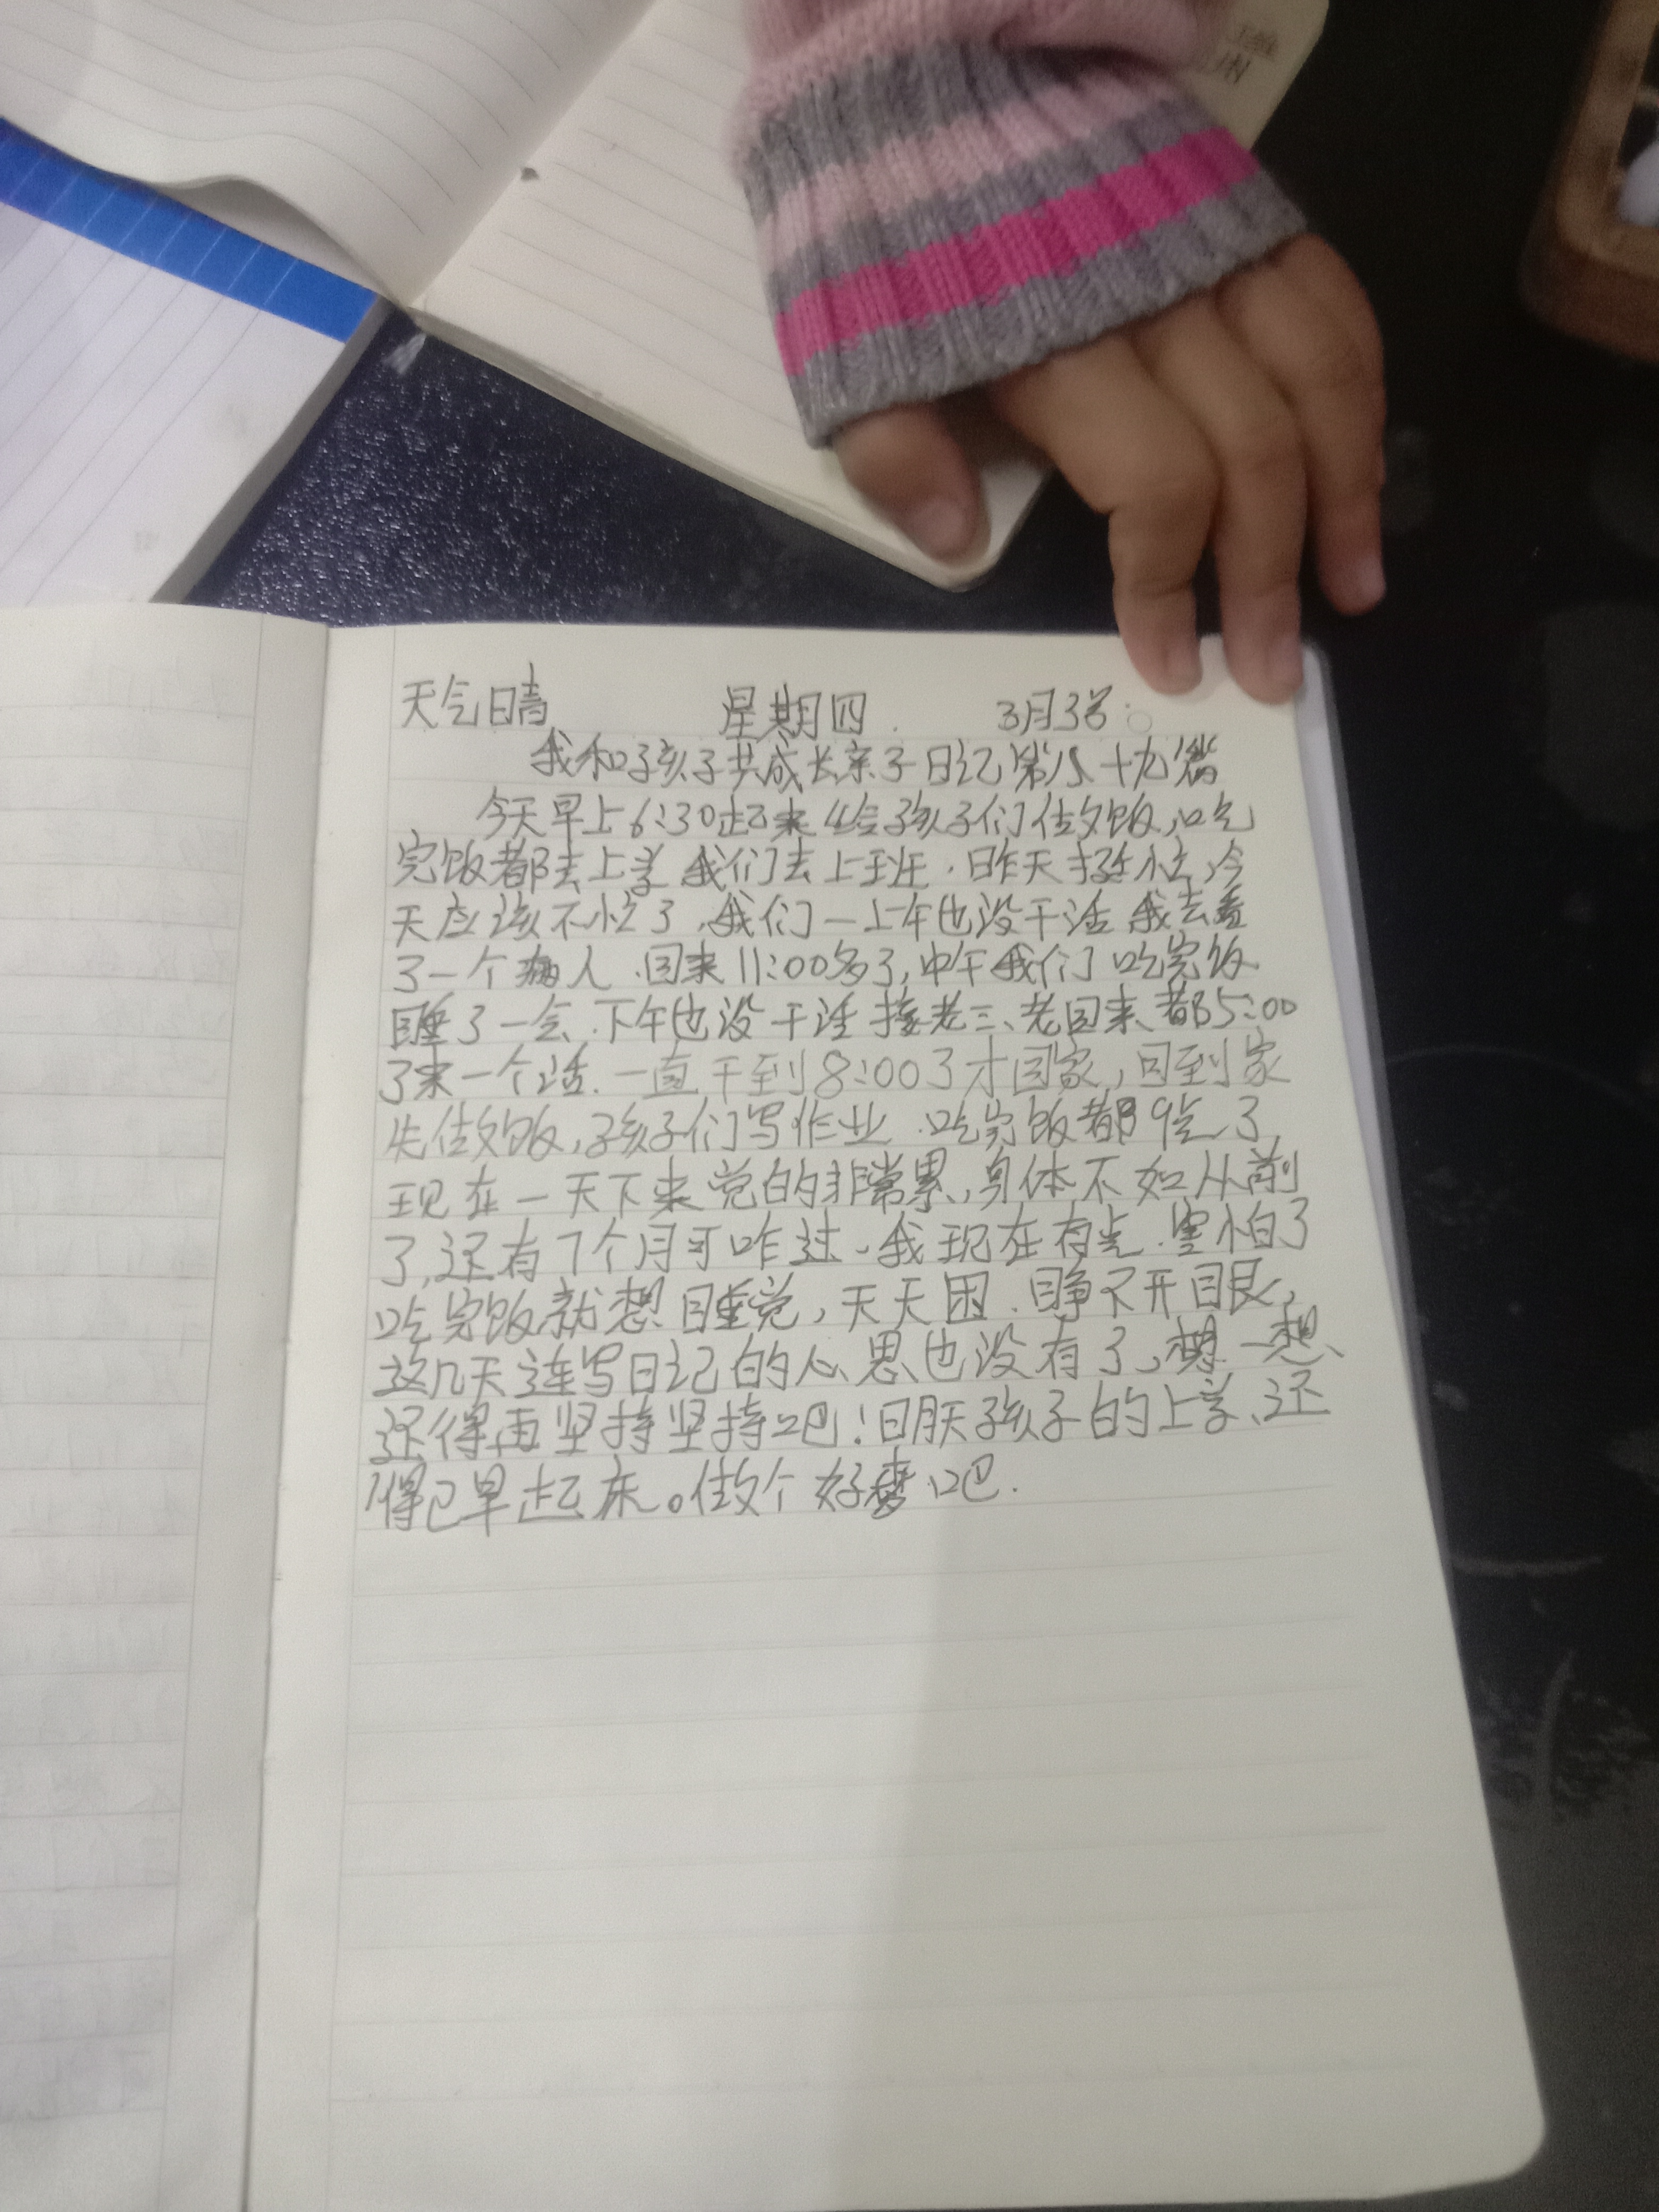 天气晴 星期四. 3月3号.
我和孩子共成长亲子日记第八十九篇
今天早上6:30起来给孩子们做饭,吃
完饭都去上学 我们去上班.昨天挺忙 今
天应该不忙了.我们一上午也没干活 我去看
了一个病人.回来11:00多了,中午我们吃完饭
睡了一会.下午也没干活 接老三、老四回来都5:00
了来一个活.一直干到8:00了才回家,回到家
先做饭,孩子们写作业.吃完饭都9点了
现在一天下来觉的非常累,身体不如从前
了,还有7个月可咋过、我现在有点.害怕了
吃完饭就想睡觉,天天困.睁不开眼,
这几天连写日记的心思也没有了,想一想、
还得再坚持坚持吧!明天孩子的上学、还
得已早起床。做个好梦吧.